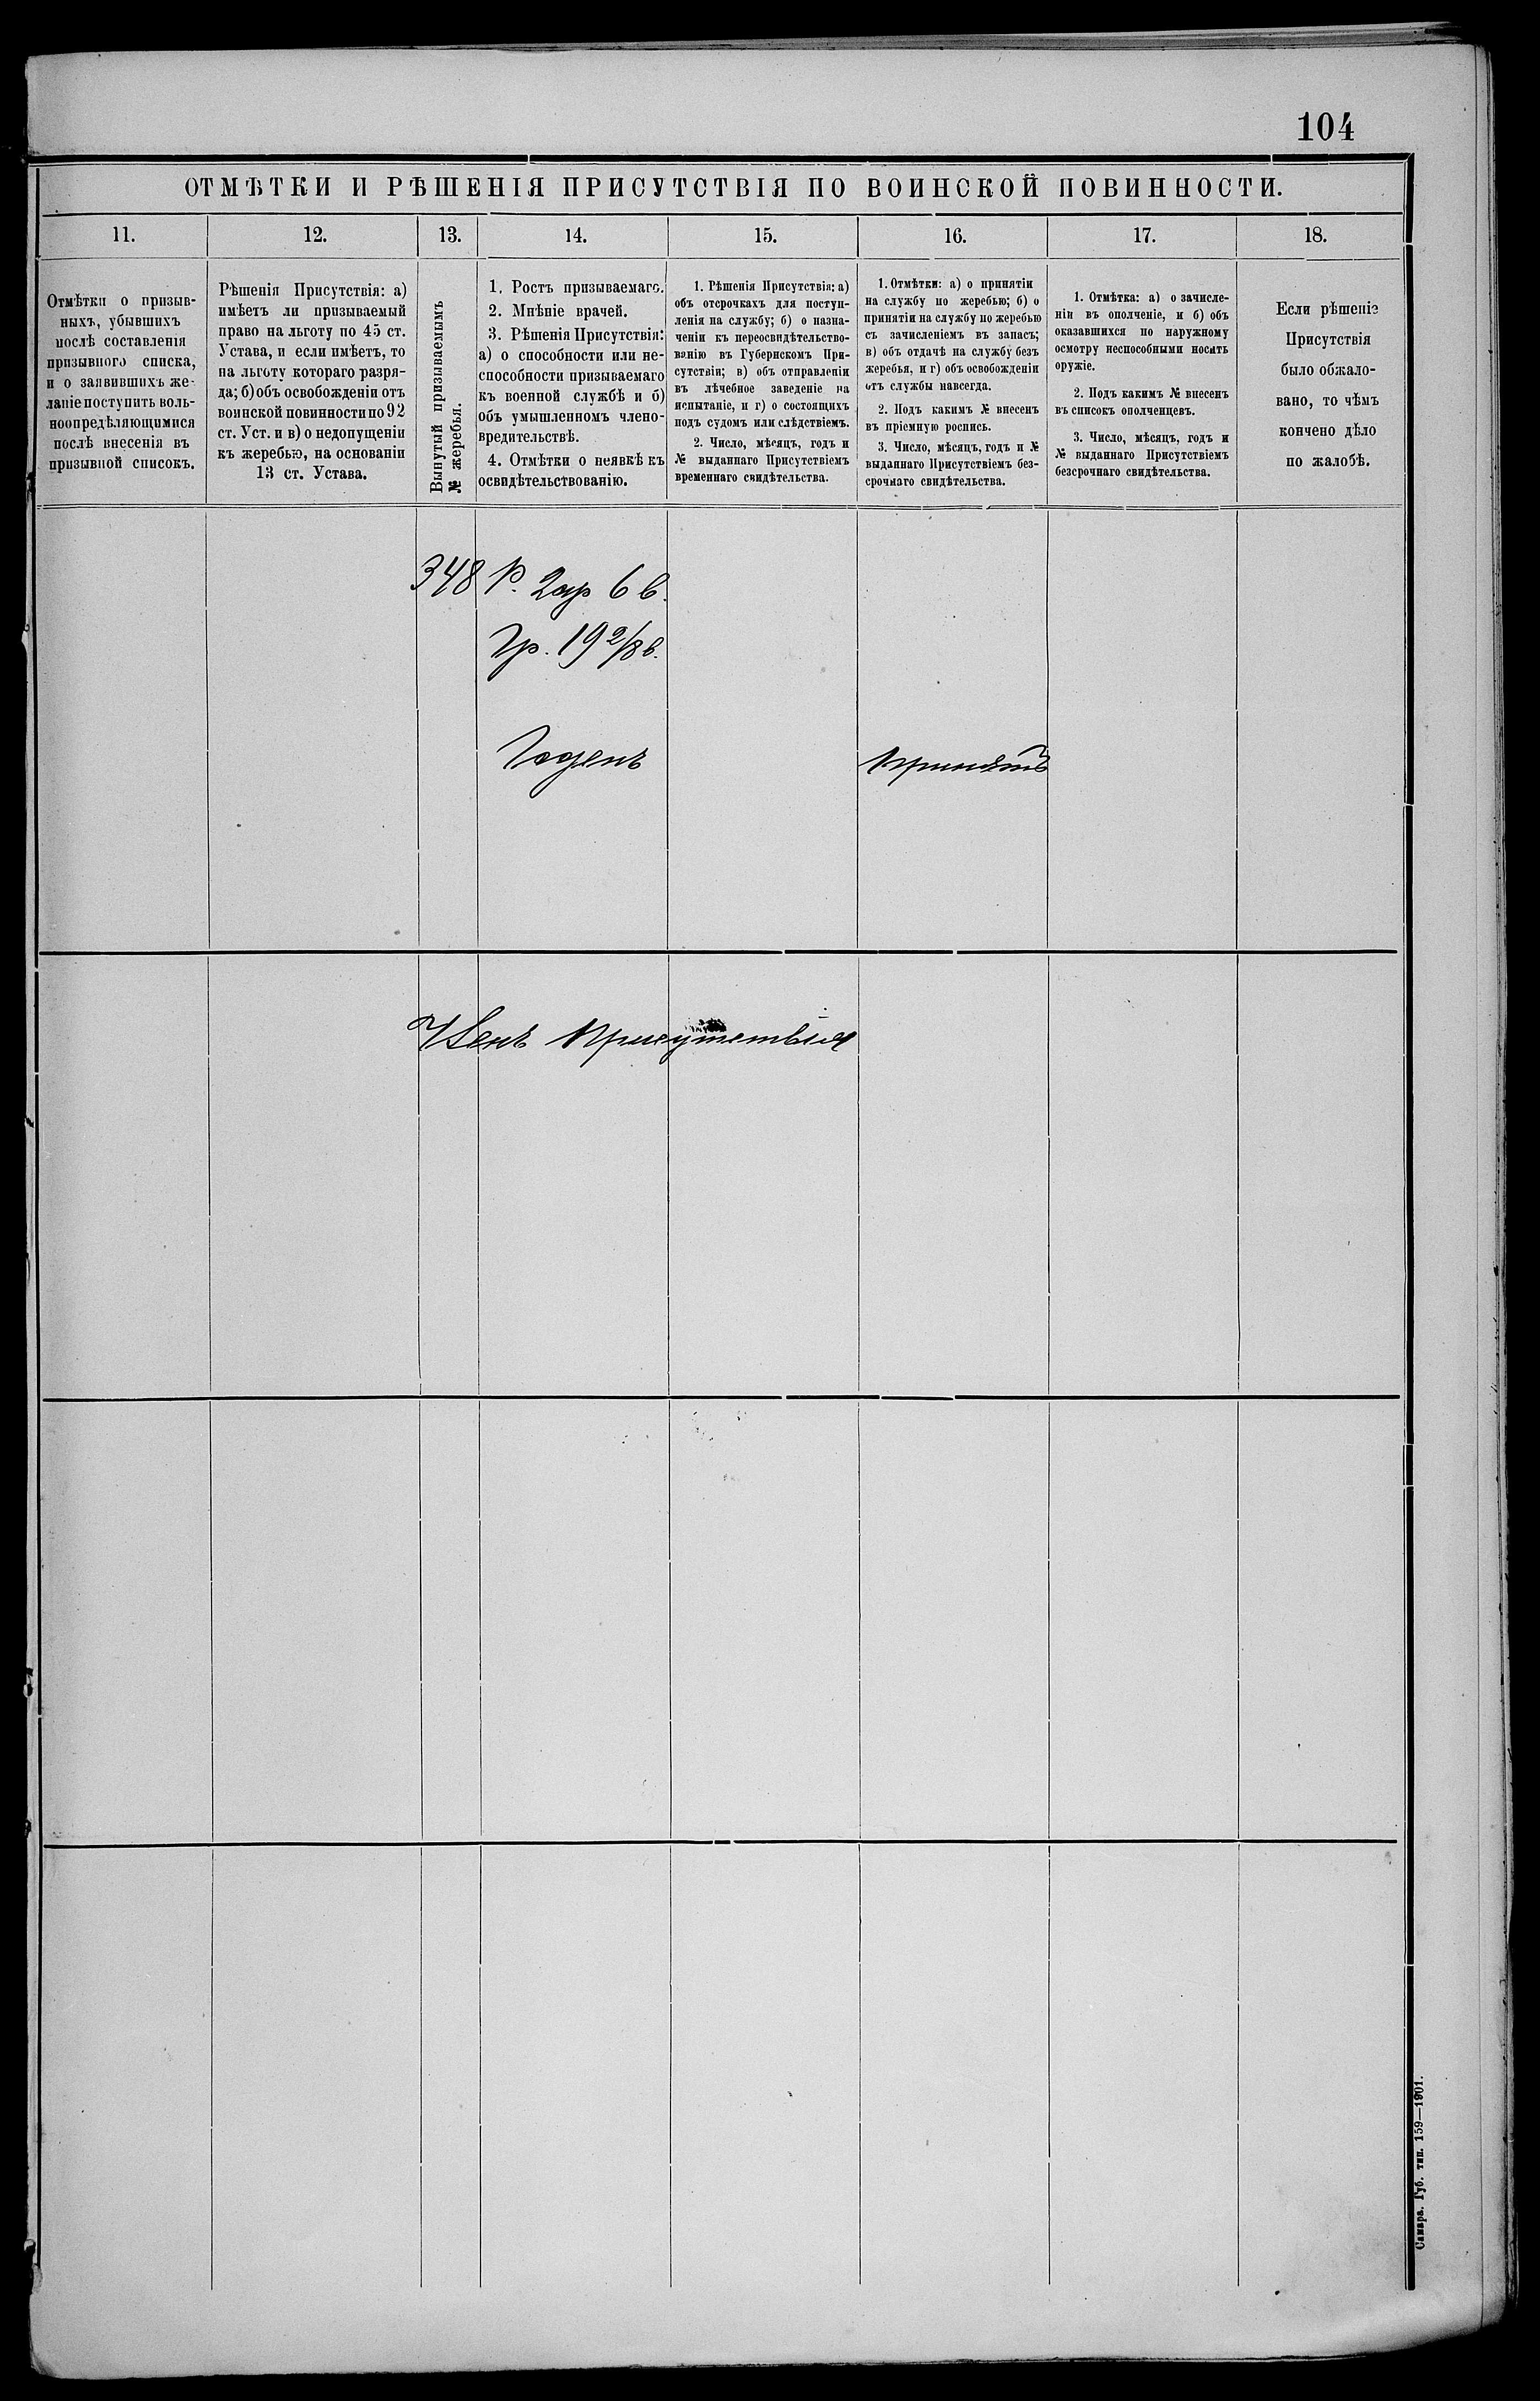 104
ОТМѢТКИ И РѢШЕНІЯ ПРИСУТСТВІЯ ПО ВОИНСКОЙ ПОВИННОСТИ.
11.
12.
13.
14.
15.
16.
17.
18.
Отмѣтки о призыв-
ныхъ, убывшихъ
послѣ составленія
призывного списка,
и о заявившихъ же-
ланіе поступить воль-
ноопредѣляющимися
послѣ внесенія въ
призывной списокъ.
Рѣшенія Присутствія: а)
имѣетъ ли призываемый
право на льготу по 45 ст.
Устава, и если имѣетъ, то
на льготу котораго разря-
да; б) объ освобожденіи отъ
воинской повинности по 92
ст. Уст. и в) о недопущеніи
къ жеребью, на основаніи
13 ст. Устава.
Вынутый призываемымъ
№ жеребья.
1. Ростъ призываемаго.
2. Мнѣніе врачей.
3. Рѣшенія Присутствія:
а) о способности или не-
способности призываемаго
къ военной службѣ и б)
объ умышленномъ члено-
вредительствѣ.
4. Отмѣтки о неявкѣ къ
освидѣтельствованію.
1. Рѣшенія Присутствія: а)
объ отсрочкахъ для поступ-
ленія на службу; б) о назна-
ченіи къ переосвидѣтельство-
ванію въ Губернскомъ При-
сутствіи; в) объ отправленіи
въ лѣчебное заведеніе на
испытаніе, и г) о состоящихъ
подъ судомъ или слѣдствіемъ.
2. Число, мѣсяцъ, годъ и
№ выданнаго Присутствіемъ
временнаго свидѣтельства.
1. Отмѣтки: а) о принятіи
на службу по жеребью; б) о
принятіи на службу по жеребью
съ зачисленіемъ въ запасъ;
в) объ отдачѣ на службу безъ
жеребья, и г) объ освобожденіи
отъ службы навсегда.
2. Подъ какимъ № внесенъ
въ пріемную роспись.
3. Число, мѣсяцъ, годъ и №
выданнаго Присутствіемъ без-
срочнаго свидѣтельства.
1. Отмѣтка: а) о зачисле-
ніи въ ополченіе, и б) объ
оказавшихся по наружному
осмотру неспособными носить
оружіе.
2. Подъ какимъ № внесенъ
въ списокъ ополченцевъ.
3. Число, мѣсяцъ, годъ и
№ выданнаго Присутствіемъ
безсрочнаго свидѣтельства.
Если рѣшеніе
Присутствія
было обжало-
вано, то чѣмъ
кончено дѣло
по жалобѣ.
348 Р. 2 ар 6 в.
Гр. 19 2/8 в.
Годенъ
Принятъ
Членъ Присутствія
Самара. Губ. тип. 159—1901.